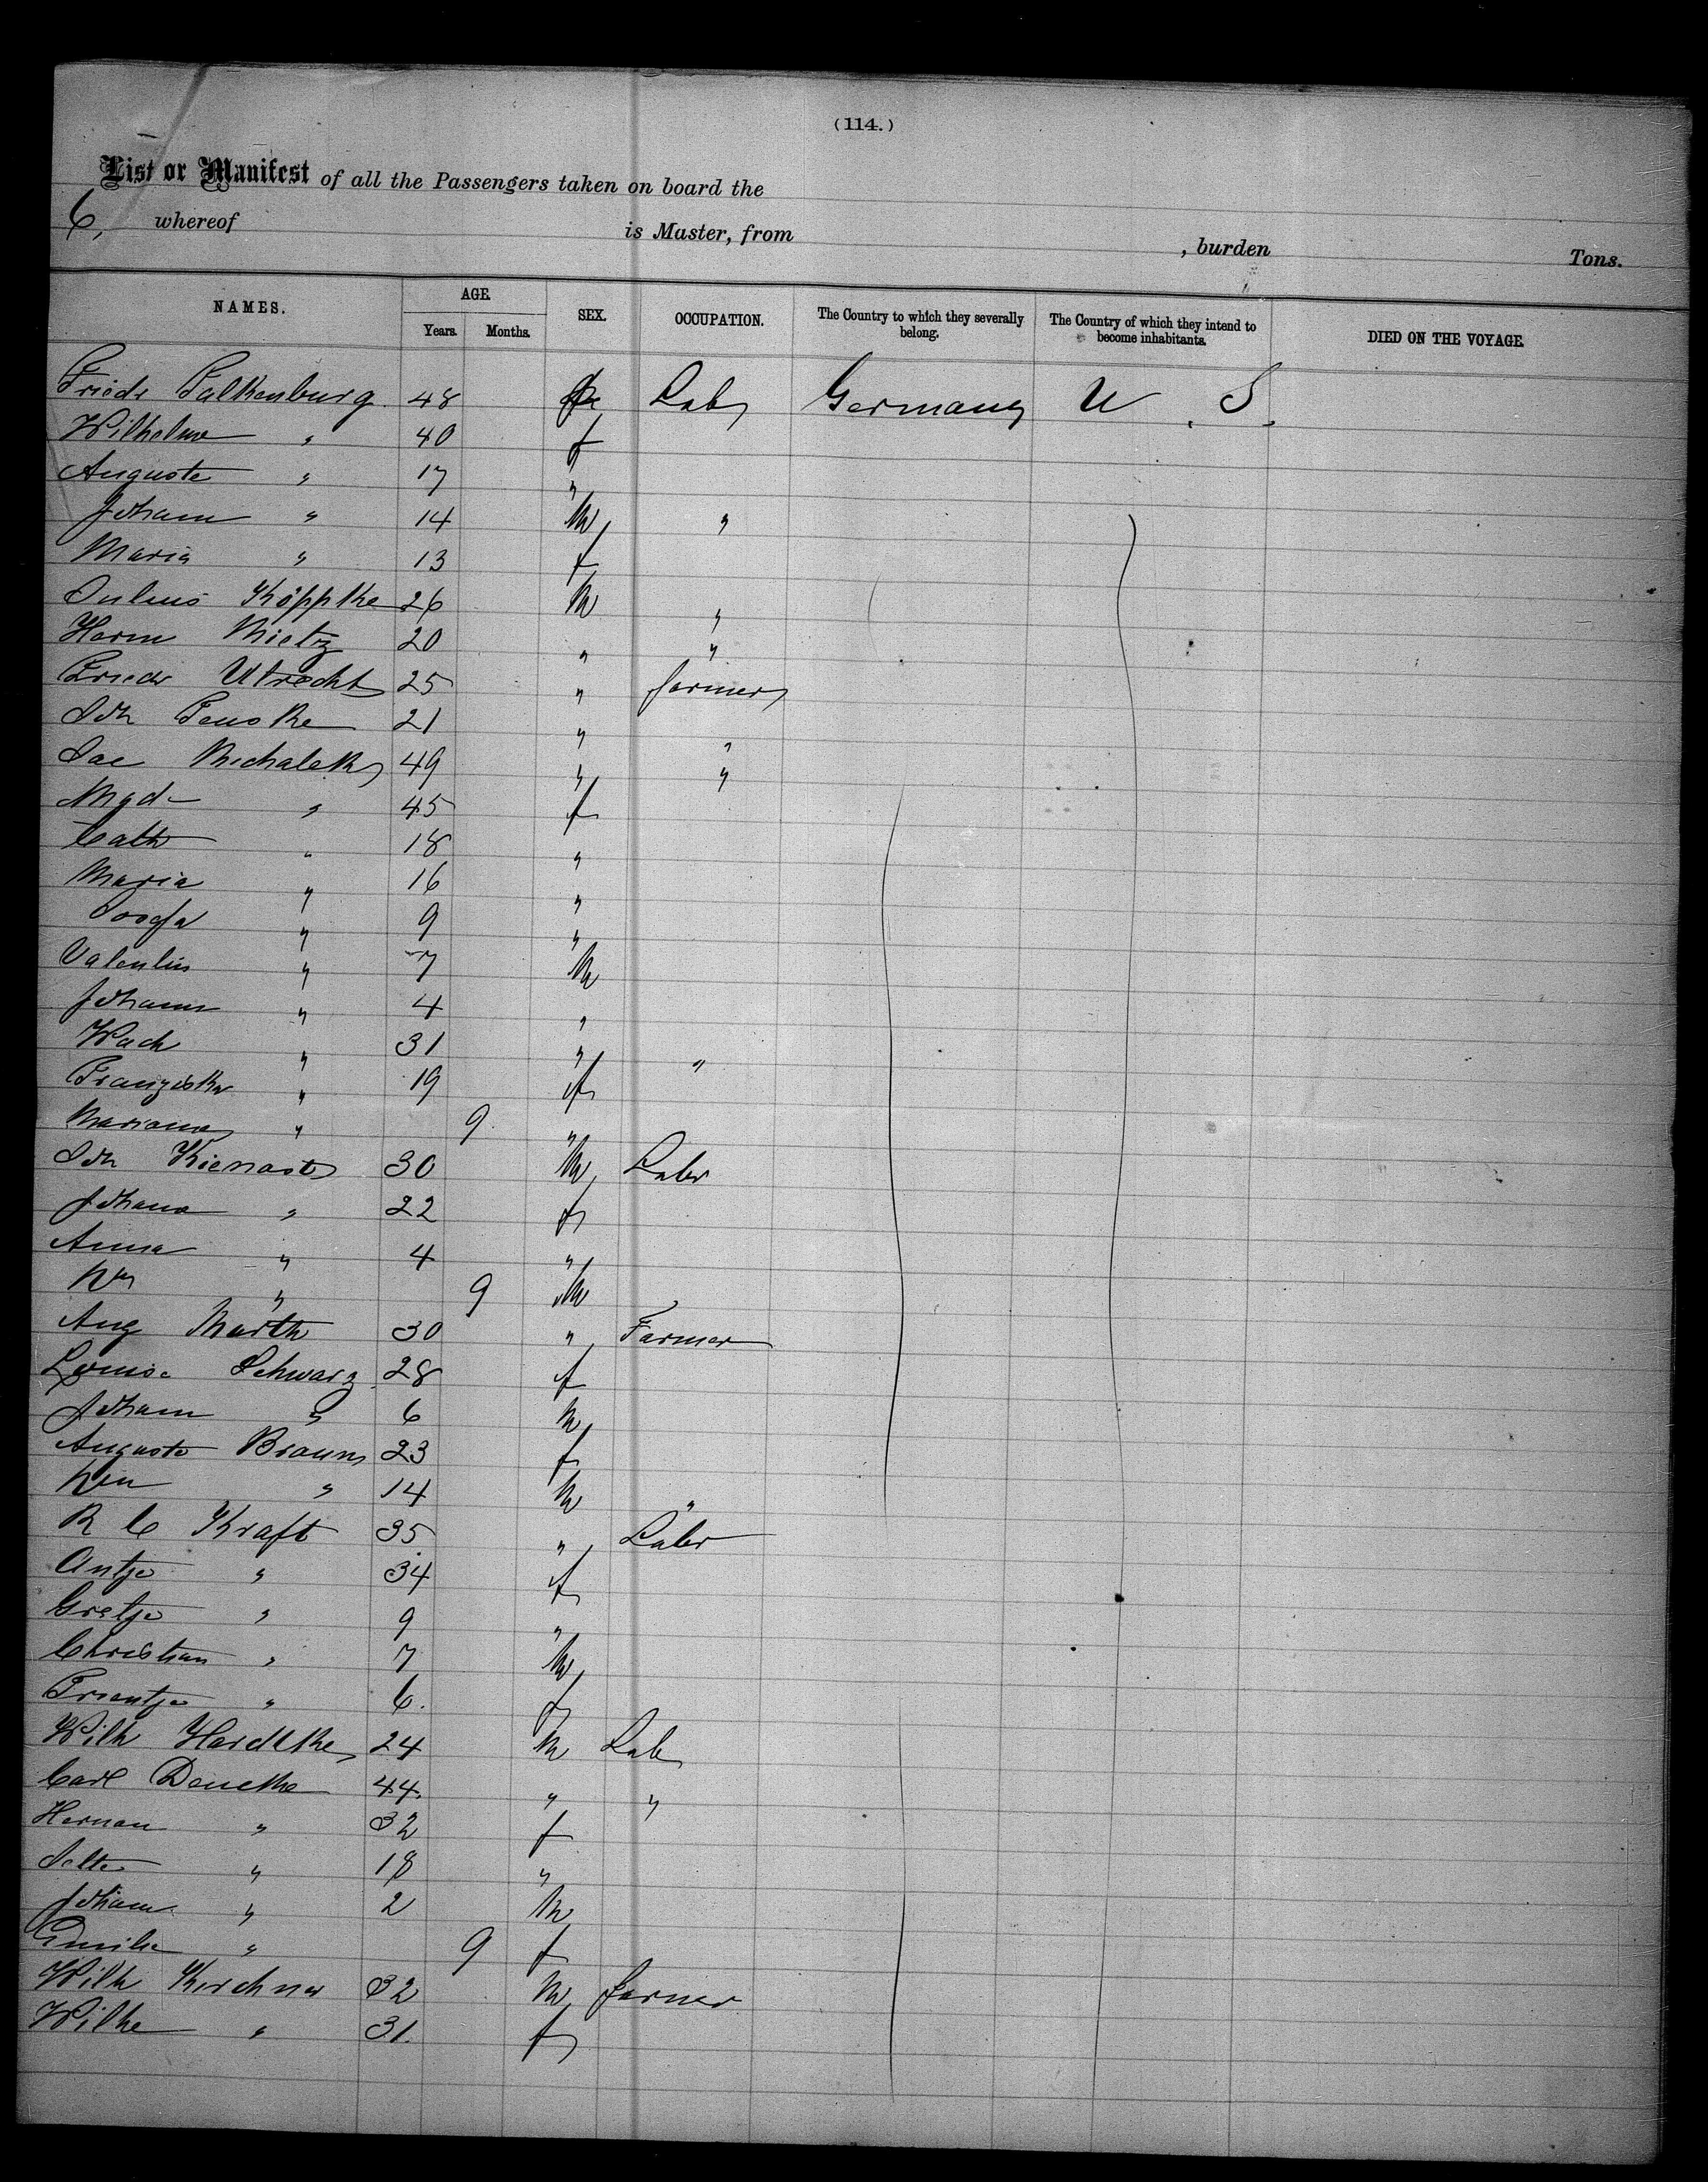 (114.)
List or Manifest of all the Passengers taken on board the
6, whereof is Master, from , burden Tons.
NAMES. AGE. SEX. OCCUPATION. The Country to which they severally belong. The Country of which they intend to become inhabitants. DIED ON THE VOYAGE.
Years. Months.
Friedr Falkenburg 48 Lab Germany U. S.
Wilhelme " 40 f
Auguste " 17 "
Johann " 14 M "
Maria " 13 f
Julius Köppke 26 M "
Herm Mietz 20 " "
Friedr Utrecht 25 " farmer
Joh Fenske 21 " "
Jac Michalek 49 " "
Magd " 45 f
Cath " 18 "
Maria " 16 "
Josefa " 9 "
Valentin " 7 M
Johann " 4 "
31 " "
Franziska " 19 f
Mariana " 9 "
Joh Kienast 30 M Labr
Johana " 22 f
Anna " 4 "
Wm " 9 M
Aug Marth 30 " Farmer
Louise Schwarz 28 f
Johann " 6 M
Auguste Braun 23 f
" 14 M "
R C Kraft 35 " Labr
Antje " 34 f
Gretje " 9 "
Christian " 7 M
Trientje " 6. f
Wilh Hardtke 24 M Lab
Carl 44. " "
" 32 f
" 18 "
Johann " 2 M
Emilie " 9 f
Wilh Kirchner 32 M farmer
Wilhe " 31. f